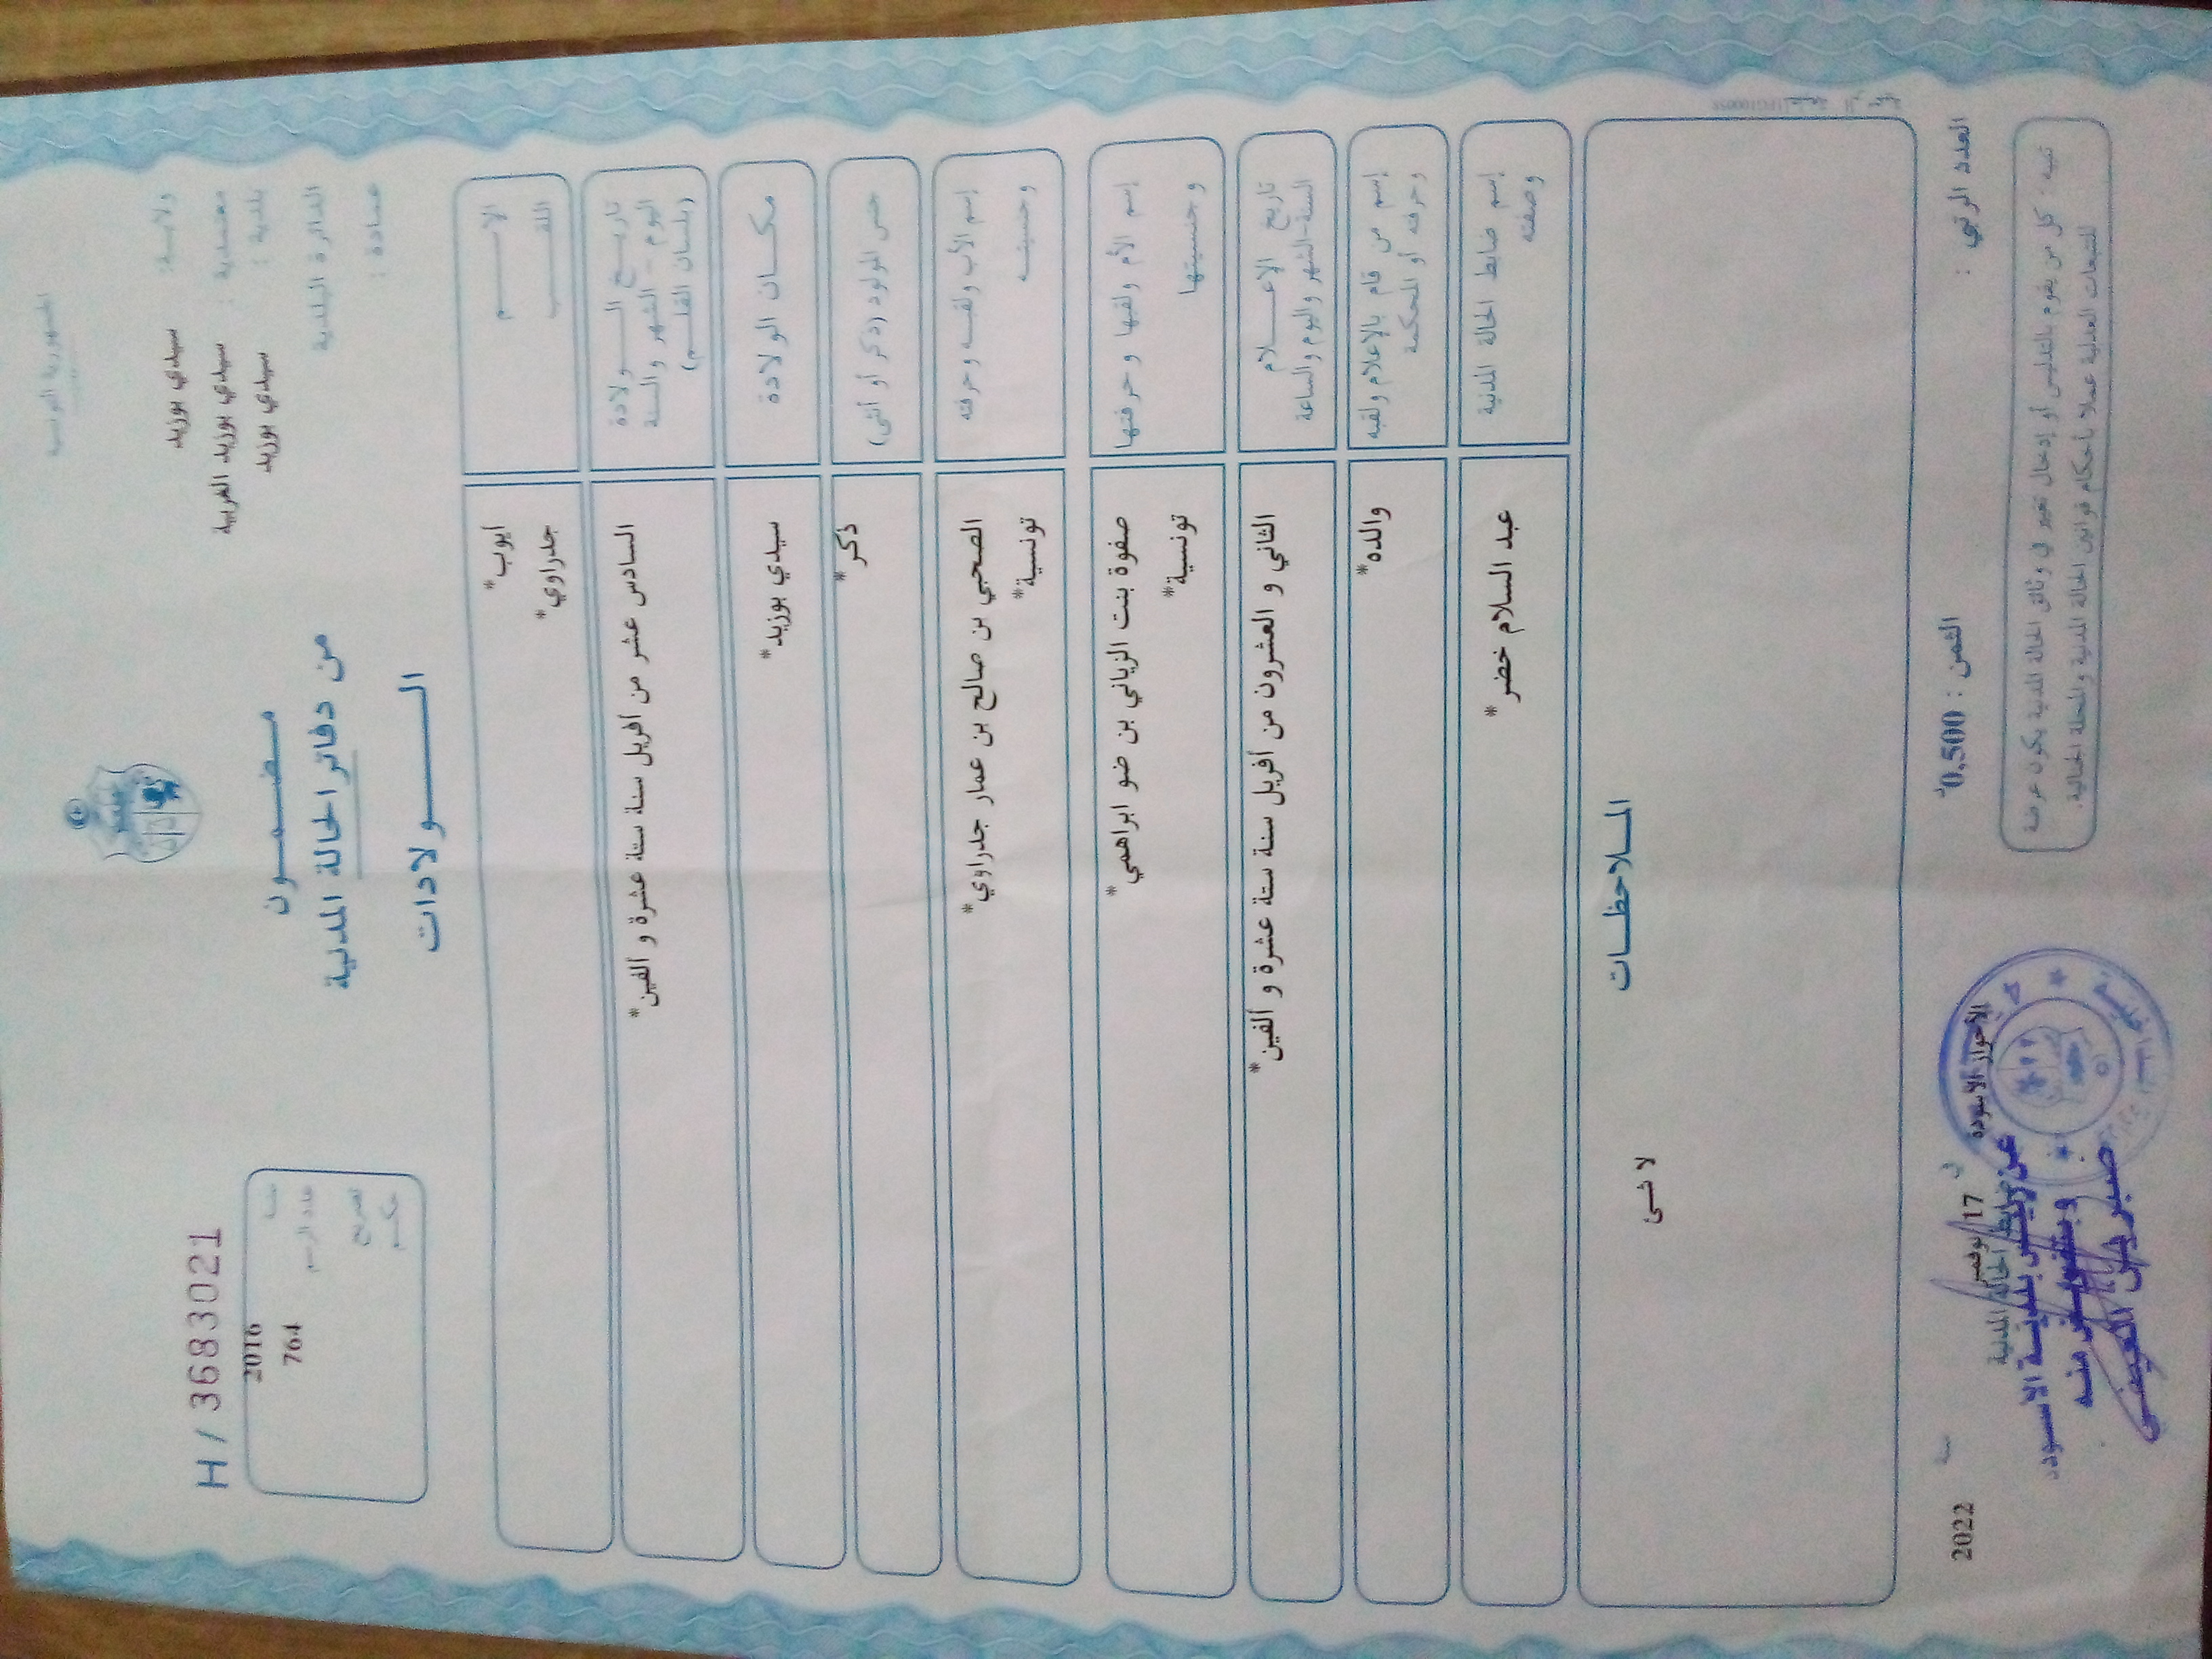 الجمهورية التونسية
ولاية: سيدي بوزيد
معتمدية : سيدي بوزيد الغربية
بلدية : سيدي بوزيد
الدائرة البلدية
عمادة :
مضمون
من دفاتر الحالة المدنية
الولادات
H / 3683021
سنة 2016
عدد الرسم 764
تصريح
حكم
الاسم أيوب*
اللقب جدراوي*
تاريخ الولادة
اليوم - الشهر والسنة
(بلسان القلم)
السادس عشر من أفريل سنة ستة عشرة و ألفين*
مكان الولادة سيدي بوزيد*
جنس المولود (ذكر أو أنثى) ذكر*
إسم الأب ولقبه وحرفته الصحبي بن صالح بن عمار جدراوي*
وجنسيته تونسية*
إسم الأم ولقبها وحرفتها صفوة بنت الزياني بن ضو ابراهمي*
وجنسيتها تونسية*
تاريخ الإعلام
السنة-الشهر واليوم والساعة
الثاني و العشرون من أفريل سنة ستة عشرة و ألفين*
إسم من قام بالإعلام ولقبه
وحرفته أو المحكمة
والده*
إسم ضابط الحالة المدنية
وصفته
عبد السلام خضر*
الملاحظات
لا شئ
العدد الرتبي :
الثمن : 0,500د
الأحواز الأسودة في 17 نوفمبر سنة 2022
ضابط الحالة المدنية
عن رئيس بلدية الاسودة
وبتفويض منه
تنبيه : كل من يقوم بالتدليس أو إدخال تغيير في وثائق الحالة المدنية يكون عرضة
للتتبعات العدلية عملا بأحكام قوانين الحالة المدنية والمجلة الجنائية.